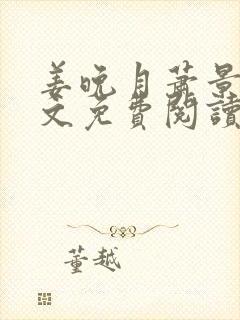 姜晚月萧景
文免費閱讀
董越